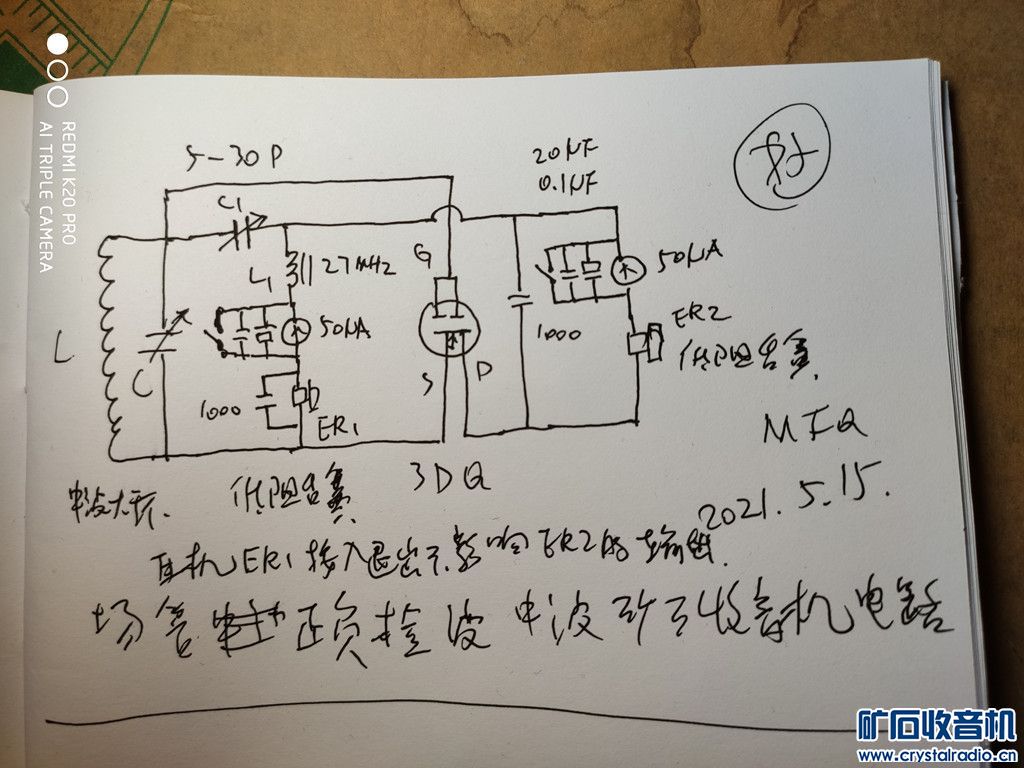 REDMI K20 PRO
AI TRIPLE CAMERA
5-30P
C1
20μF
0.1μF
L1
27MHZ
G
50μA
50μA
1000
ER2
低阻舌簧
L
C
S
D
1000
ER1
MFQ
中波大环.
低阻舌簧
3DQ
2021.5.15.
耳机ER1接入退出不影响ER2的输出
场管 正负检波 中波矿石收音机电路
矿石收音机
www.crystalradio.cn